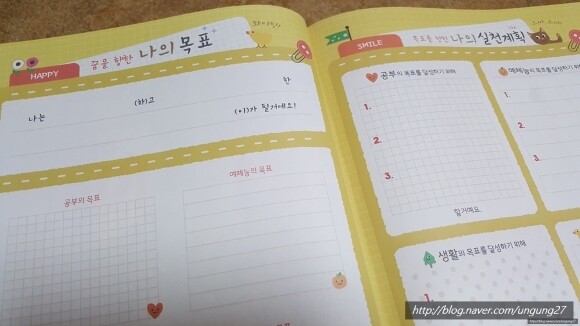 HAPPY
꿈을 향한 나의 목표
한
나는 (하)고
(이)가 될거예요!
공부의 목표
예체능의 목표
SMILE
목표를 향한 나의 실천계획
공부의 목표를 달성하기 위해
1.
2.
3.
할거예요.
예체능의 목표를 달성하기 위해
1.
2.
3.
생활의 목표를 달성하기 위해
1.
http://blog.naver.com/ungung27